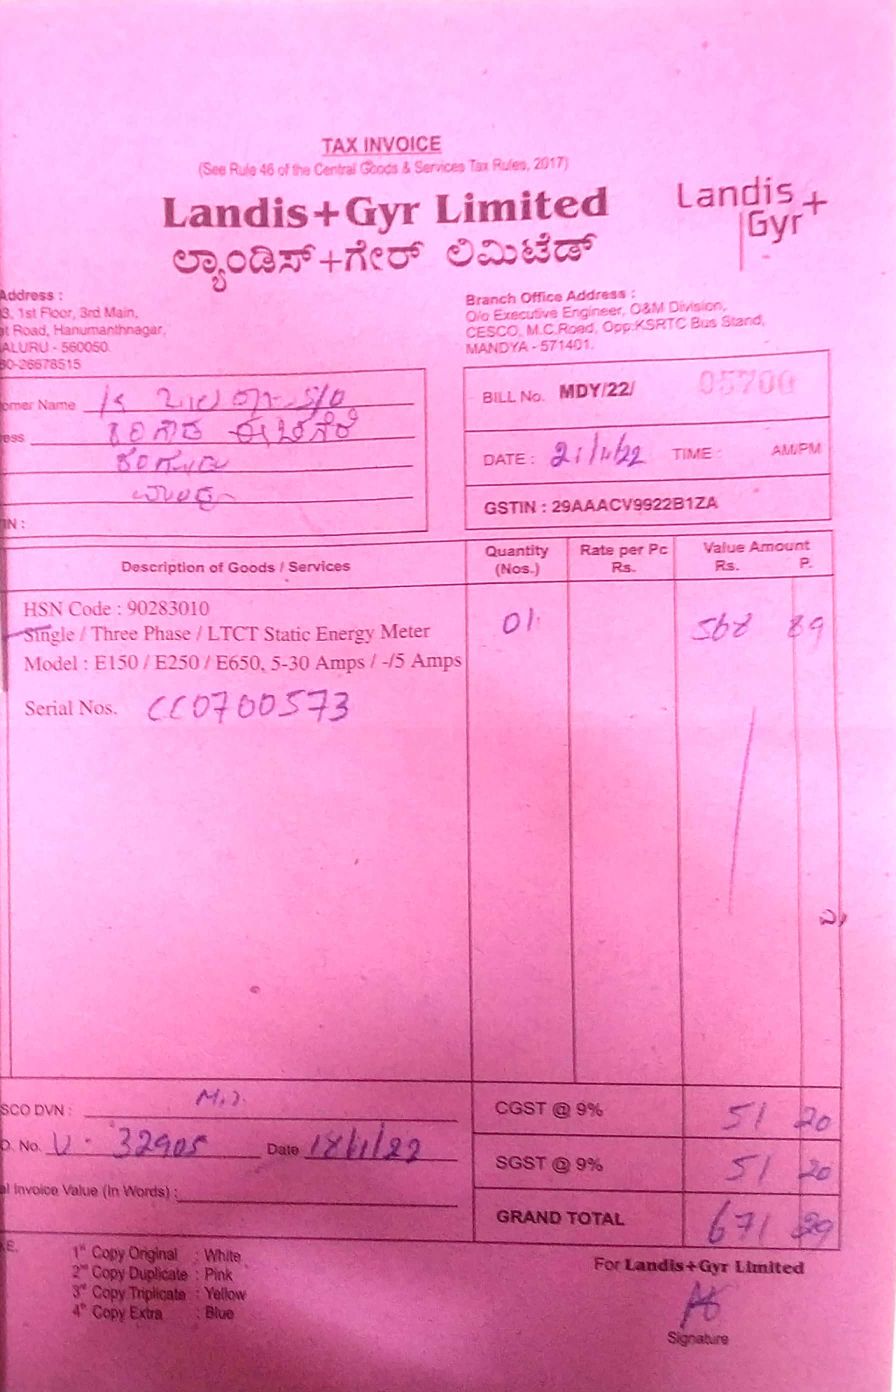 TAX INVOICE
(See Rule 46 of the Central Goods & Services Tax Rules, 2017)
Landis+Gyr Limited
Landis+
Gyr
ಲ್ಯಾಂಡಿಸ್+ಗೇರ್ ಲಿಮಿಟೆಡ್
Address :
3, 1st Floor, 3rd Main,
t Road, Hanumanthnagar,
ALURU - 560050.
80-26678515
Branch Office Address :
O/o Executive Engineer, O&M Division,
CESCO, M.C.Road, Opp.KSRTC Bus Stand,
MANDYA - 571401.
omer Name S/O
ess
IN :
BILL No. MDY/22/ 05700
DATE : 21/1/22 TIME : AM/PM
GSTIN : 29AAACV9922B1ZA
Description of Goods / Services Quantity (Nos.) Rate per Pc Rs. Value Amount Rs. P.
HSN Code : 90283010
Single / Three Phase / LTCT Static Energy Meter 01 568 89
Model : E150 / E250 / E650, 5-30 Amps / -/5 Amps
Serial Nos. CC0700573
SCO DVN :
CGST @ 9% 51 20
D. No. 32905 Date 18/1/22
SGST @ 9% 51 20
al Invoice Value (In Words) :
GRAND TOTAL 671 29
1st Copy Original : White
2nd Copy Duplicate : Pink
3rd Copy Triplicate : Yellow
4th Copy Extra : Blue
For Landis+Gyr Limited
Signature